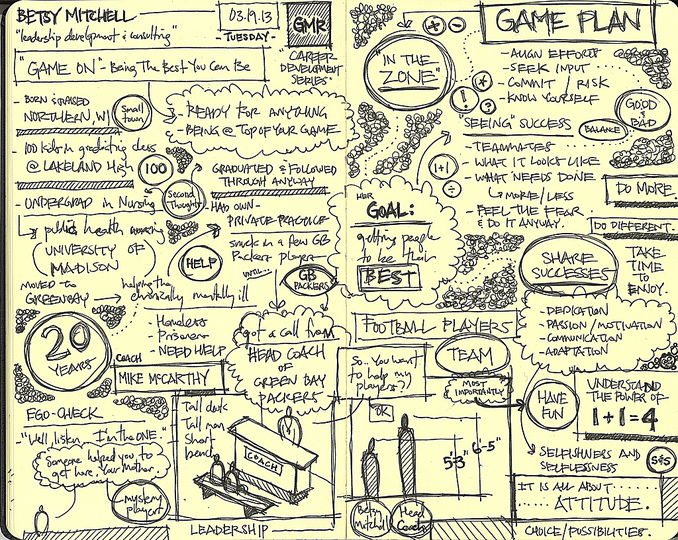 BETSY MITCHELL
"leadership development & consulting"
03.19.13
TUESDAY-
GMR
"CAREER
DEVELOPMENT
SERIES"
"GAME ON" - Being The Best You Can Be
- BORN & RAISED
NORTHERN, WI
Small
town
- READY FOR ANYTHING
- BEING @ TOP OF YOUR GAME
- 100 kids in graduating class
@ LAKELAND High
100
GRADUATED & FOLLOWED
THROUGH ANYWAY
- UNDERGRAD in Nursing
Second
Thoughts
- HAD OWN -
PRIVATE-PRACTICE
public health nursing
UNIVERSITY OF
MADISON
HELP
snuck in a few GB
Packers players
UNTIL...
GB
PACKERS
MOVED to
GREENBAY
helping the
chronically mentally ill
20
YEARS
- Homeless
- Prisoners
- NEED HELP
got a call from
HEAD COACH
OF
GREEN BAY
PACKERS
COACH
MIKE McCARTHY
EGO-CHECK
- "Well, listen... I'm the ONE."
Someone helped you to
get here. Your Mother.
mystery
player
Tall dark
Tall man
Short
bench
COACH
LEADERSHIP
"IN THE
ZONE"
+
-
!
*
?
GAME PLAN
- ALIGN EFFORTS
- SEEK INPUT
- COMMIT / RISK
- KNOW YOURSELF
GOOD
BAD
BALANCE
"SEEING" SUCCESS
- TEAMMATES
- WHAT IT LOOKS LIKE
- WHAT NEEDS DONE
MORE/LESS
- FEEL THE FEAR
& DO IT ANYWAY.
DO MORE
DO DIFFERENT.
1+1
÷
HER
GOAL:
getting people
to be their
BEST
SHARE
SUCCESSES
TAKE
TIME
TO
ENJOY.
- DEDICATION
- PASSION / MOTIVATION
- COMMUNICATION
- ADAPTATION
FOOTBALL PLAYERS
TEAM
So.. You want
to help my
players?
MOST
IMPORTANTLY
"OK
5'3"
6'-5"
Betsy
Mitchell
Head
Coach
HAVE
FUN
UNDERSTAND
THE POWER OF
1+1=4
SELFISHNESS AND
SELFLESSNESS
S&S
IT IS ALL ABOUT
ATTITUDE.
CHOICE/POSSIBILITIES.